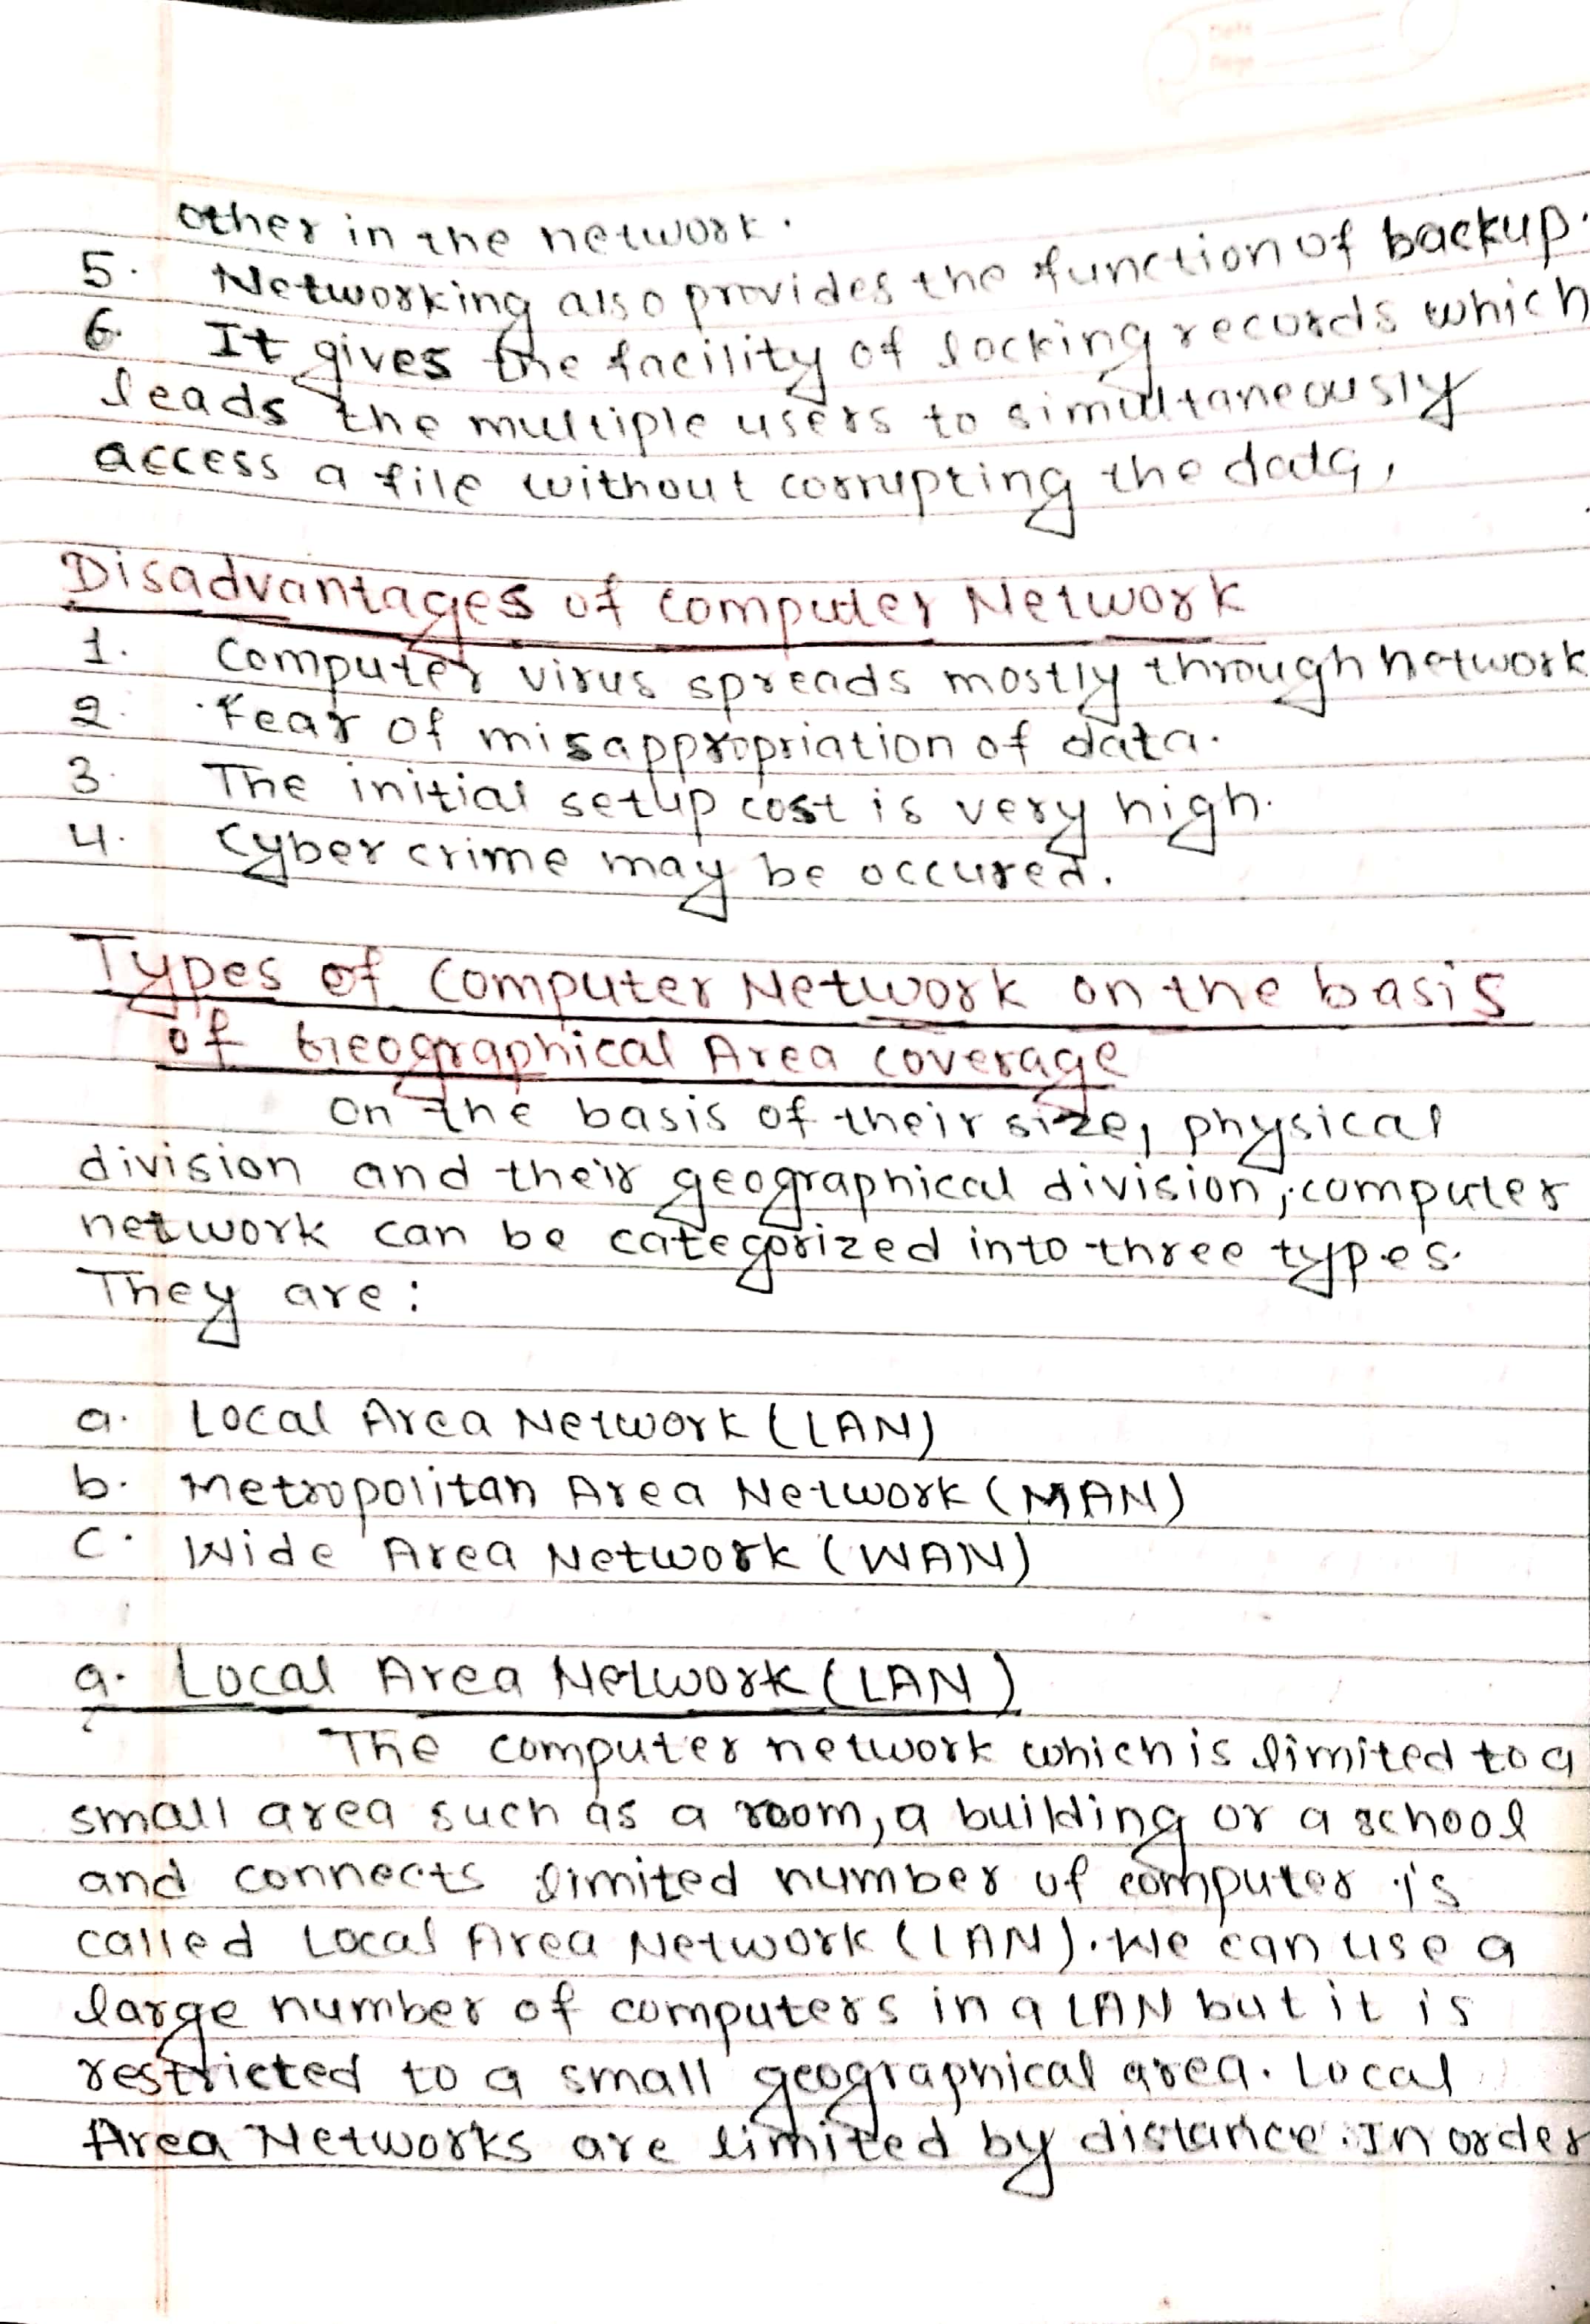 Date
Page
other in the network.
5. Networking also provides the function of backup.
6. It gives the facility of locking records which
leads the multiple users to simultaneously
access a file without corrupting the data,
Disadvantages of computer Network
1. Computer virus spreads mostly through network
2. Fear of misappropriation of data.
3. The initial setup cost is very high.
4. Cyber crime may be occured.
Types of Computer Network on the basis
of Geographical Area coverage
On the basis of their size, physical
division and their geographical division, computer
network can be categorized into three types.
They are:
a. Local Area Network (LAN)
b. Metropolitan Area Network (MAN)
c. Wide Area Network (WAN)
a. Local Area Network (LAN)
The computer network which is limited to a
small area such as a room, a building or a school
and connects limited number of computer is
called Local Area Network (LAN). We can use a
large number of computers in a LAN but it is
restricted to a small geographical area. Local
Area Networks are limited by distance. In order